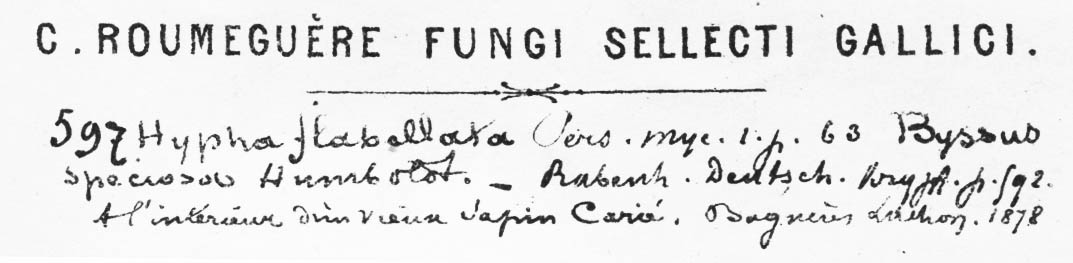 C. ROUMEGUÈRE FUNGI SELLECTI GALLICI.
597 Hypha flabellata Pers. myc. 1. p. 63 Byssus
speciosos Humboldt. — Rabenh. Deutsch. Krypt. p. 592.
A l'intérieur d'un vieux sapin Carié. Bagnères Luchon. 1878